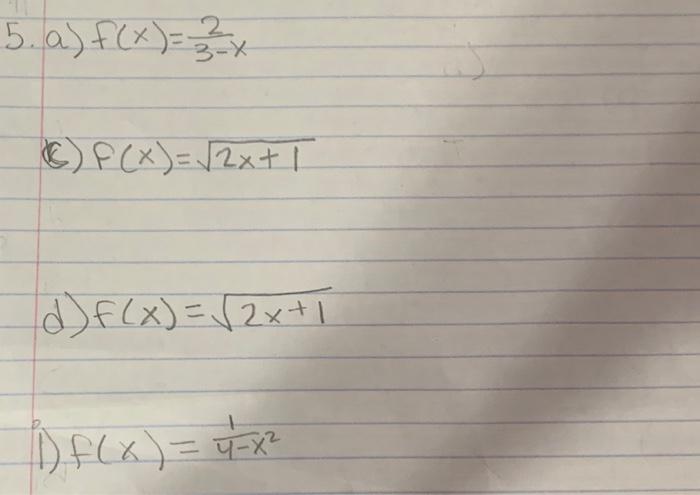 5. a) f(x)=2/(3-x)
c) f(x)=√(2x+1)
d) f(x)=√(2x+1)
i) f(x)=1/(4-x²)